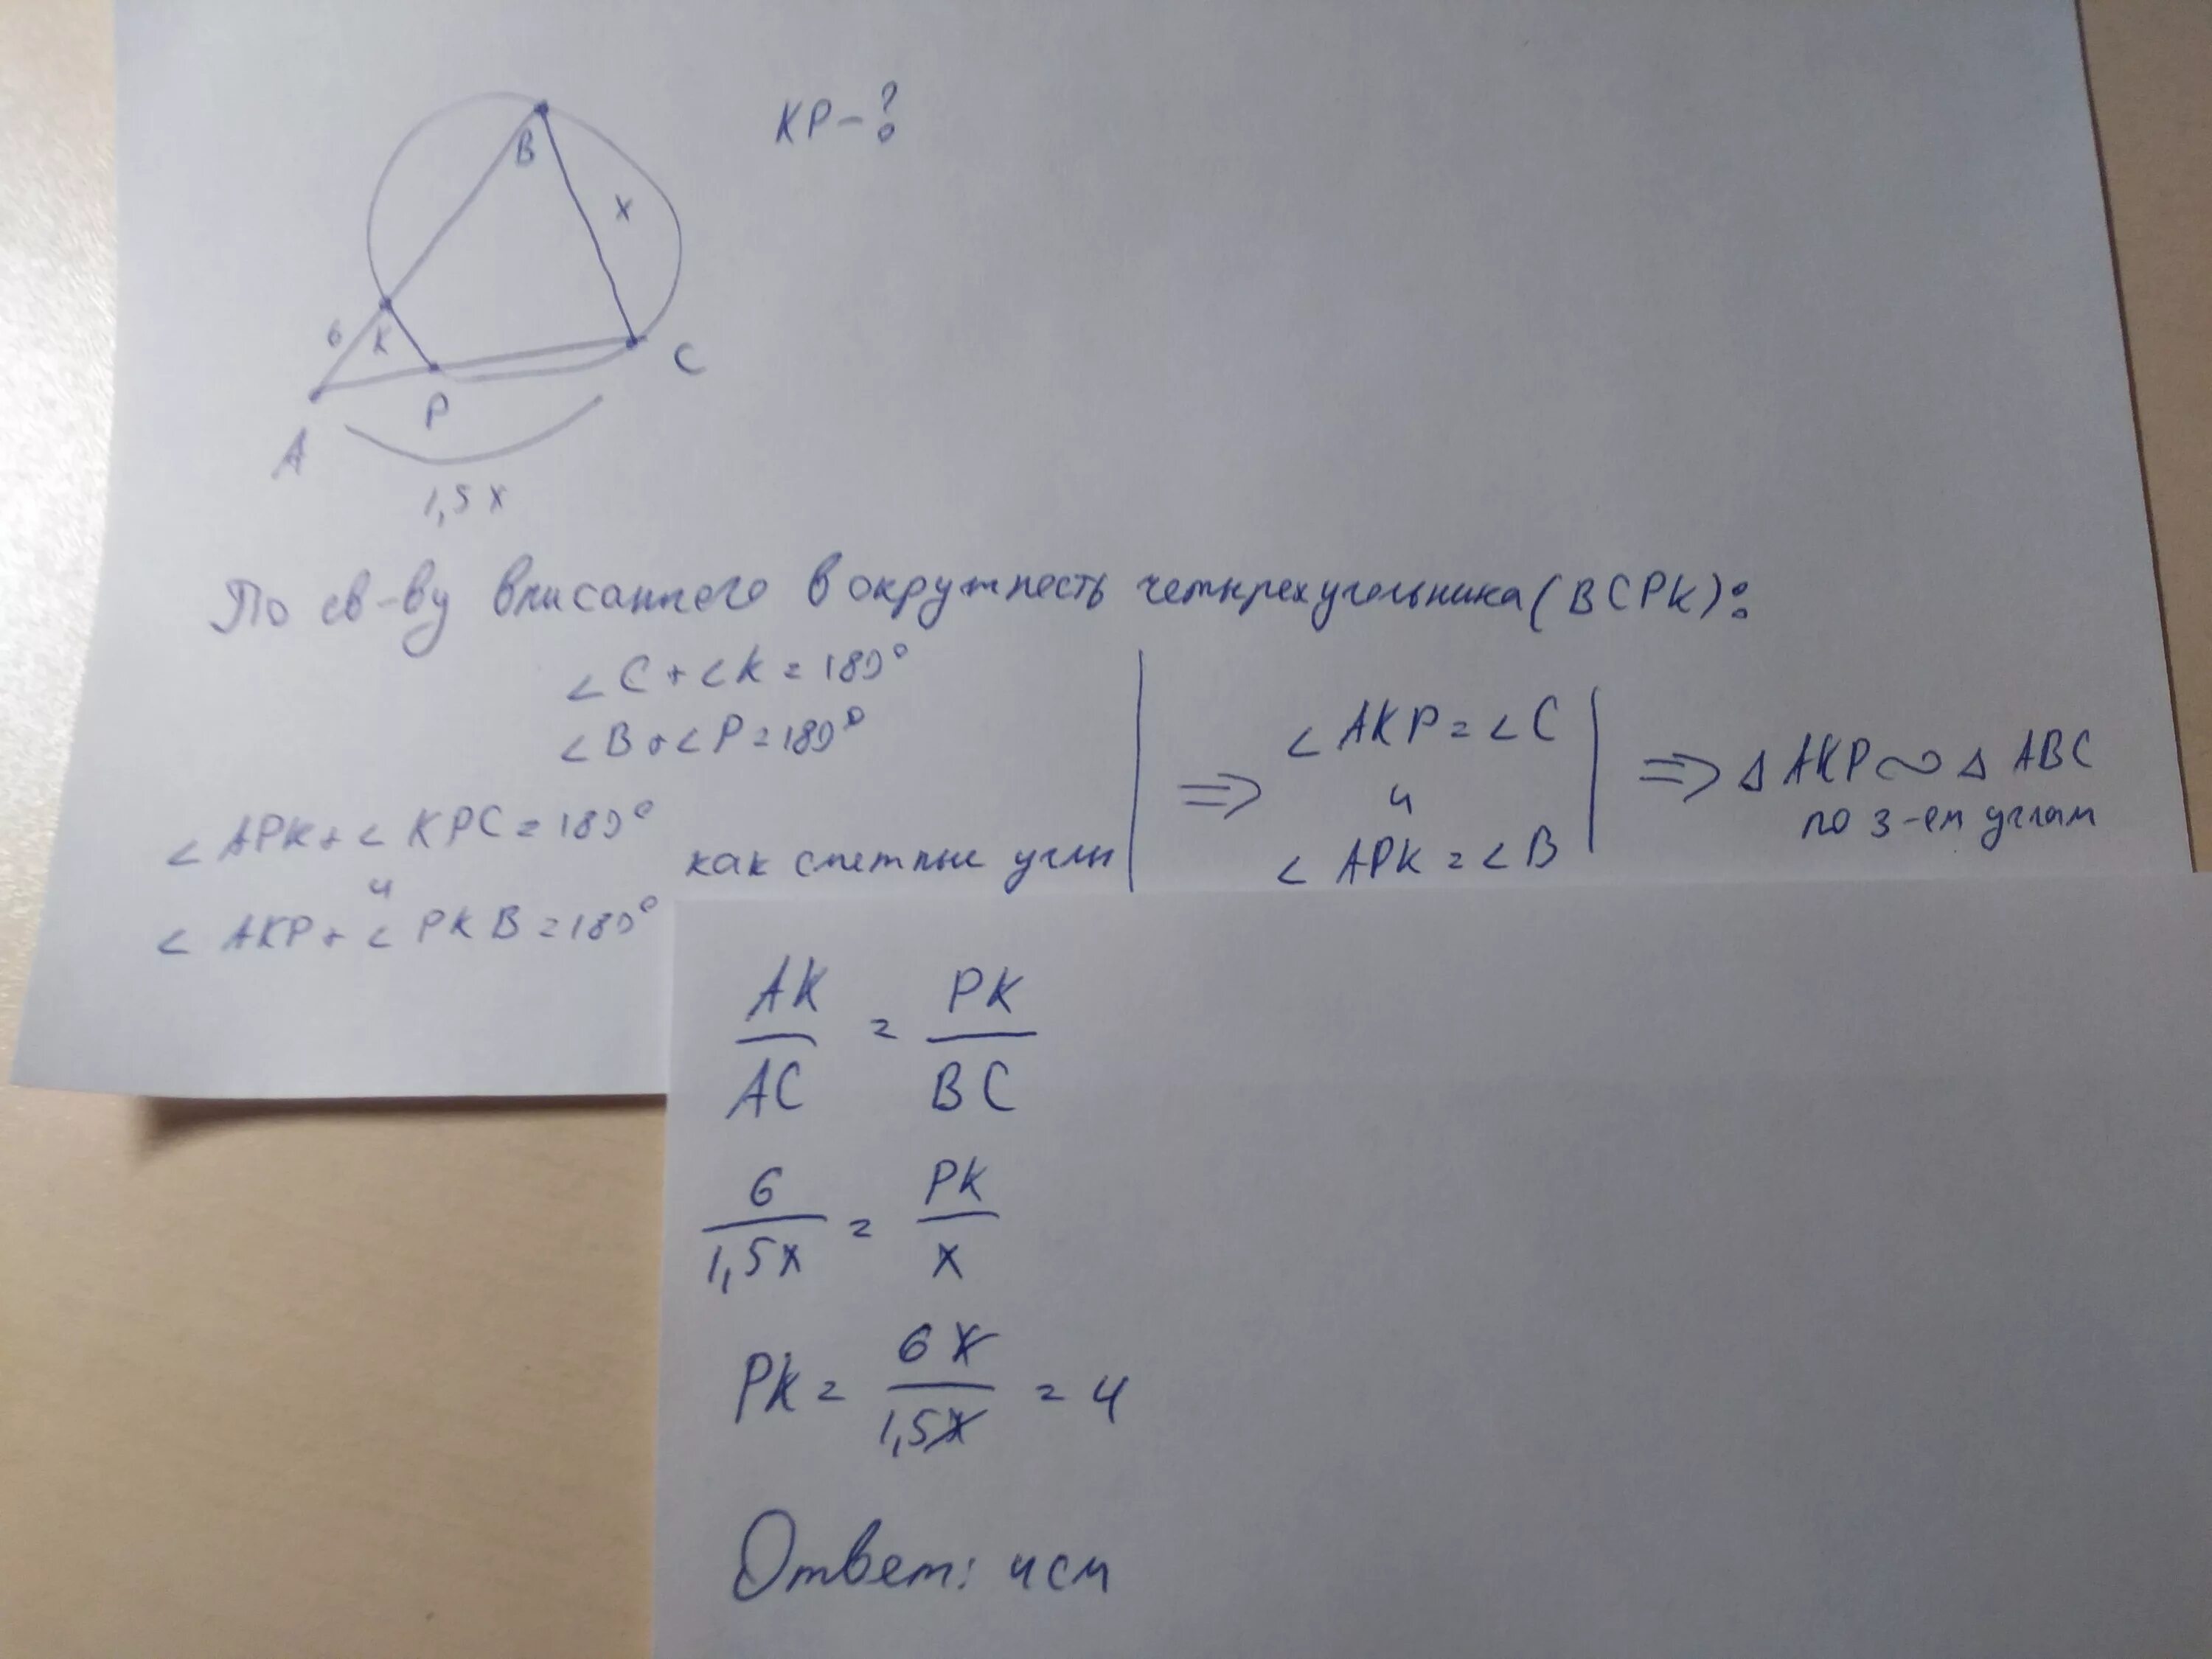 KP-?
B
x
6
K
C
P
A
1,5x
По св-ву вписанного в окружность четырехугольника (BCPK):
∠C+∠K=180°
∠B+∠P=180°
∠APK+∠KPC=180°
и
∠AKP+∠PKB=180°
как смежные углы
=> ∠AKP=∠C
и
∠APK=∠B
=> Δ AKP ∾ Δ ABC
по 3-ем углам
AK/AC = PK/BC
6/1,5x = PK/x
PK = 6x/1,5x = 4
Ответ: 4см